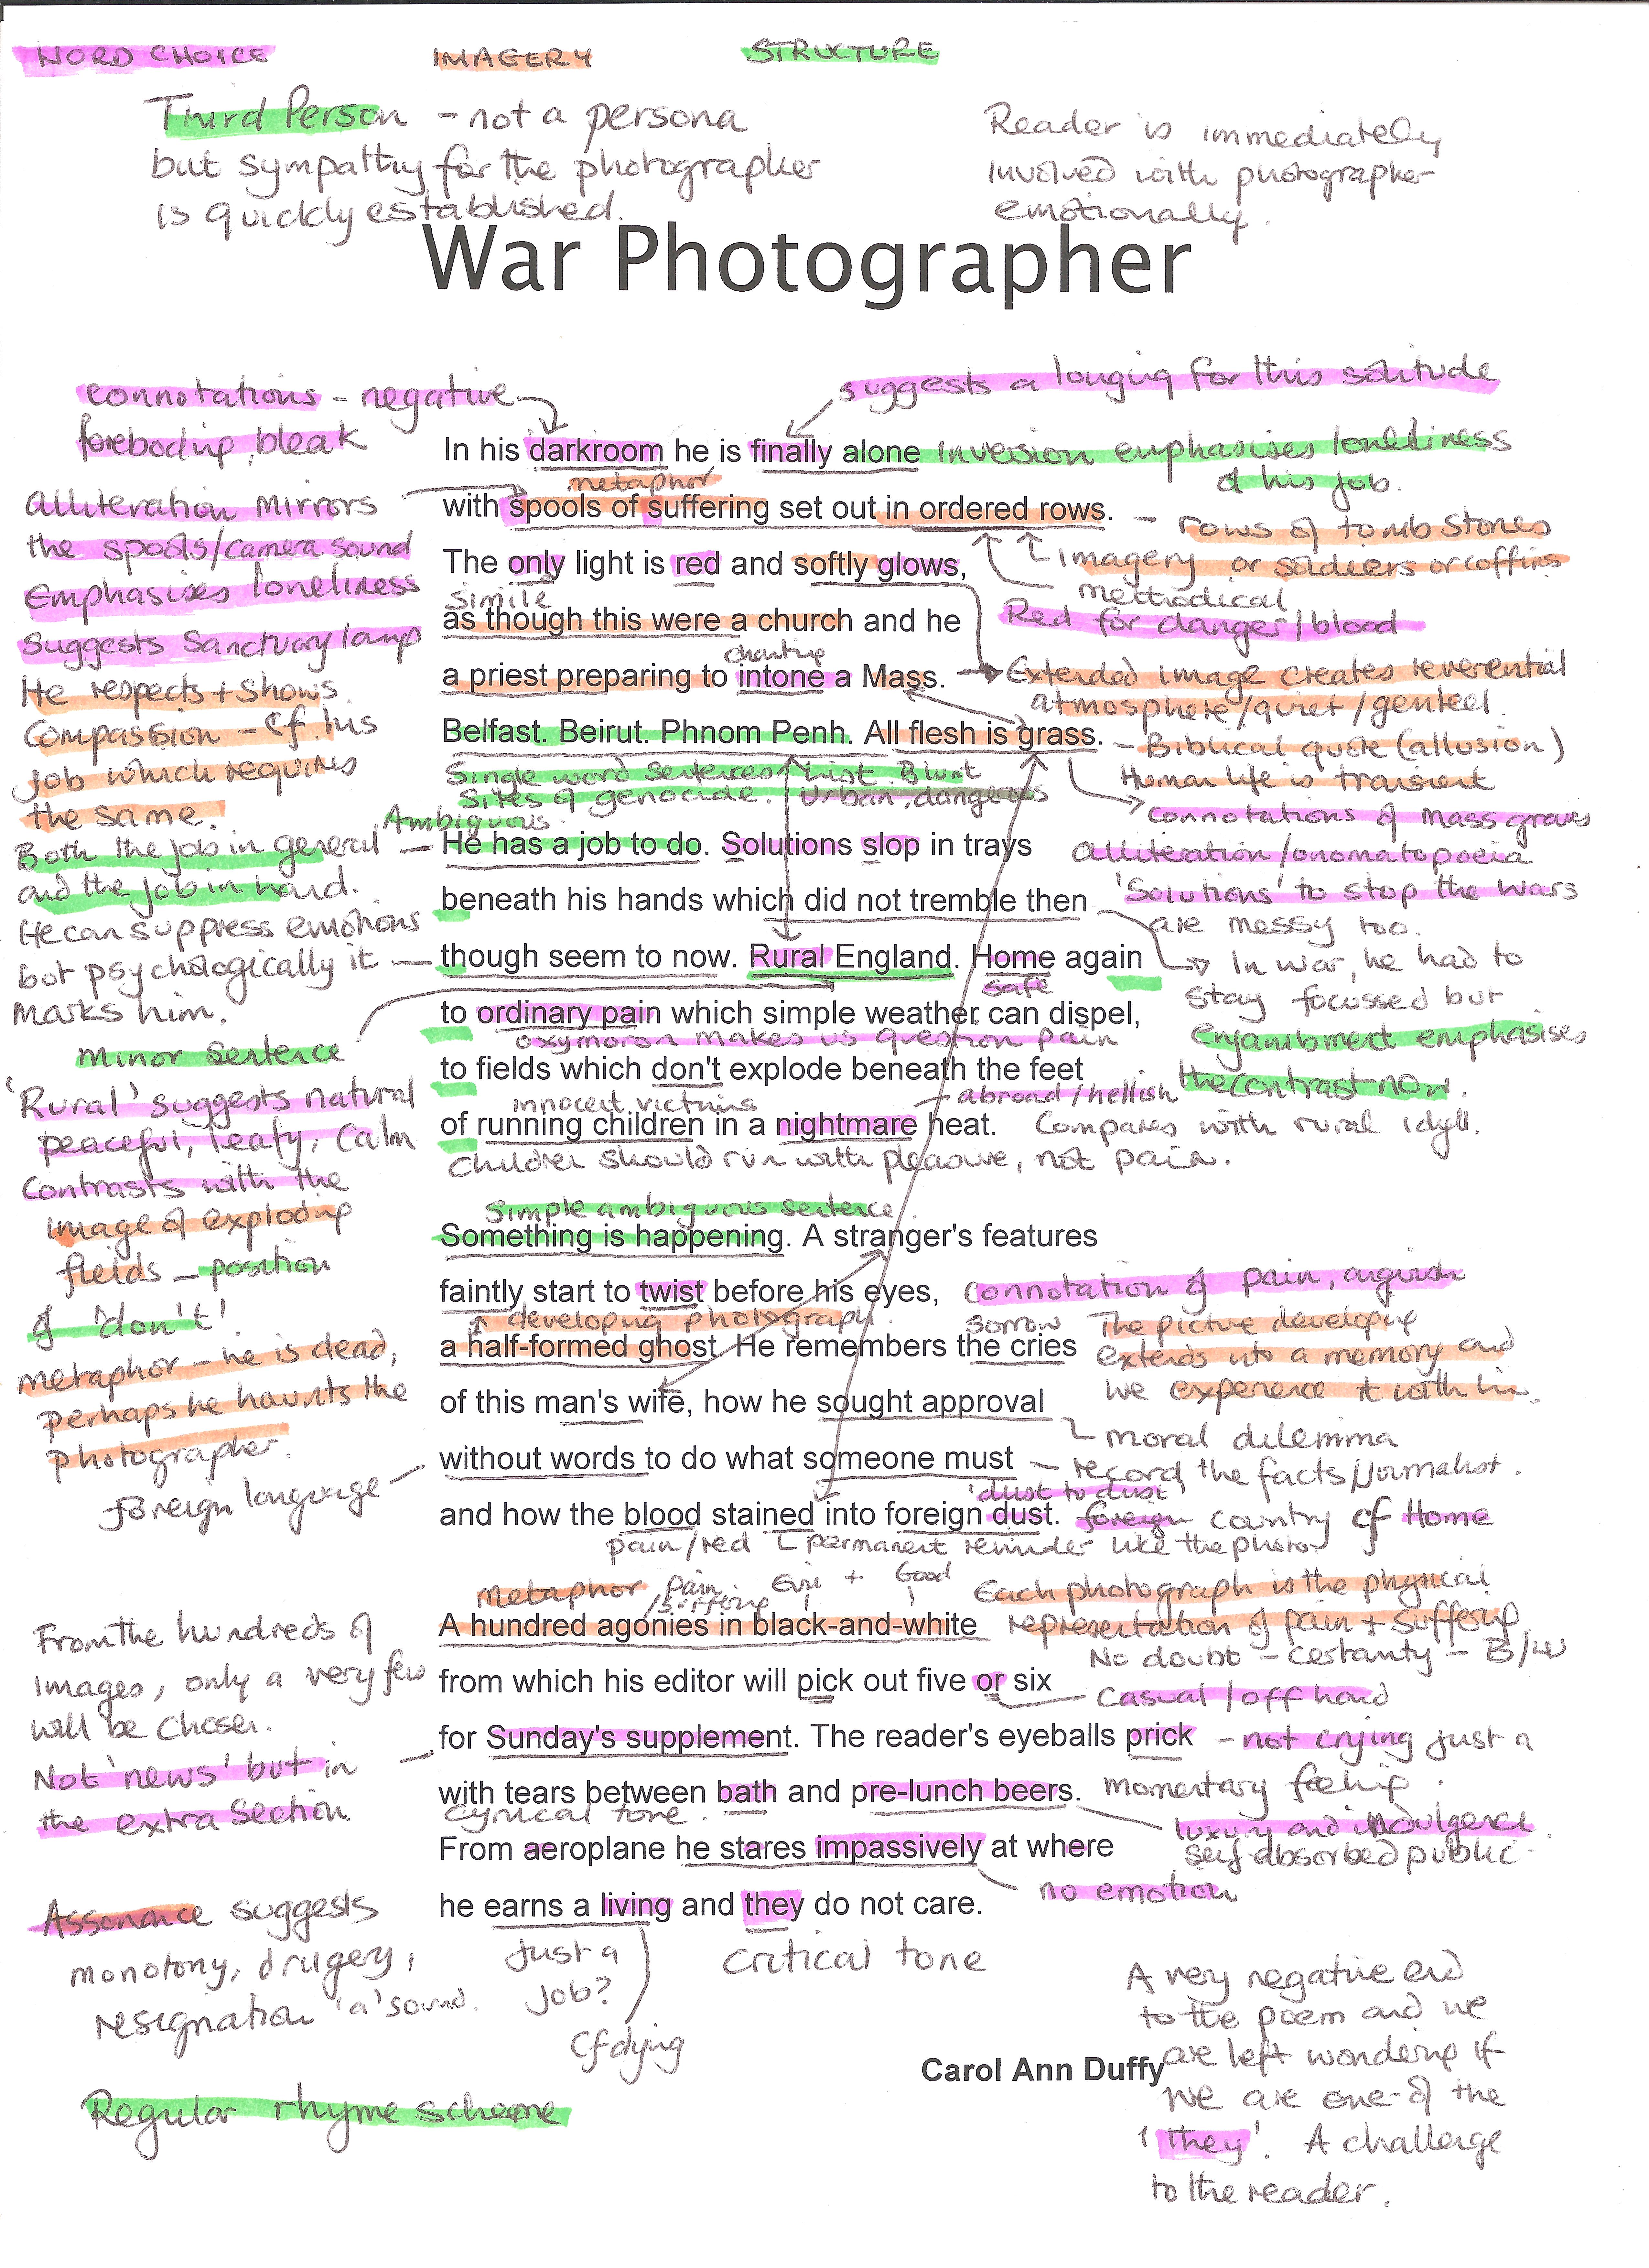 WORD CHOICE
IMAGERY
STRUCTURE
Third Person - not a persona
but sympathy for the photographer
is quickly established.
Reader is immediately
involved with photographer
emotionally.
War Photographer
connotations - negative
foreboding, bleak
suggests a longing for this solitude
In his darkroom he is finally alone
inversion emphasises loneliness
of his job.
metaphor
with spools of suffering set out in ordered rows.
- rows of tomb stones
or soldiers or coffins
imagery
methodical
Alliteration mirrors
the spools/camera sound
Emphasises loneliness
Suggests Sanctuary lamp
The only light is red and softly glows,
Red for danger/blood
simile
as though this were a church and he
chanting
a priest preparing to intone a Mass.
Extended image creates reverential
atmosphere/quiet/genteel.
He respects + shows
compassion - cf his
job which requires
the same.
Belfast. Beirut. Phnom Penh. All flesh is grass.
- Biblical quote (allusion)
Human life is transient
connotations of mass graves
Single word sentences
List. Blunt
Sites of genocide.
Urban, dangerous
Ambiguous.
Both the job in general
and the job in hand.
He has a job to do. Solutions slop in trays
alliteration/onomatopoeia
'Solutions' to stop the wars
are messy too.
beneath his hands which did not tremble then
In war, he had to
stay focussed but
enjambment emphasises
the contrast now.
He can suppress emotions
but psychologically it
marks him.
though seem to now. Rural England. Home again
safe
minor sentence
to ordinary pain which simple weather can dispel,
oxymoron makes us question pain
to fields which don't explode beneath the feet
innocent victims
abroad/hellish
of running children in a nightmare heat.
Compares with rural idyll.
Children should run with pleasure, not pain.
'Rural' suggests natural
peaceful, leafy, calm
Contrasts with the
image of exploding
fields - position
of 'don't'
Simple ambiguous sentence.
Something is happening. A stranger's features
faintly start to twist before his eyes,
connotation of pain, anguish
developing photograph.
sorrow
The picture developing
extends into a memory and
we experience it with him.
a half-formed ghost. He remembers the cries
metaphor - he is dead,
perhaps he haunts the
photographer.
of this man's wife, how he sought approval
moral dilemma
foreign language
without words to do what someone must
- record the facts/journalist.
'dust to dust'
and how the blood stained into foreign dust.
foreign country cf Home
pain/red
permanent reminder like the photo
metaphor
Pain
/suffering
Evil + Good
Each photograph is the physical
representation of pain + suffering
A hundred agonies in black-and-white
No doubt - certainty - B/W
From the hundreds of
images, only a very few
will be chosen.
from which his editor will pick out five or six
casual/off hand
Not 'news' but in
the extra section.
for Sunday's supplement. The reader's eyeballs prick
- not crying just a
momentary feeling.
with tears between bath and pre-lunch beers.
luxury and indulgence.
self-absorbed public
cynical tone.
From aeroplane he stares impassively at where
no emotion
he earns a living and they do not care.
Assonance suggests
monotony, drugery,
resignation 'a' sound.
Just a
job?
cf dying
critical tone
A very negative end
to the poem and we
are left wondering if
we are one of the
'they'. A challenge
to the reader.
Carol Ann Duffy
Regular rhyme scheme